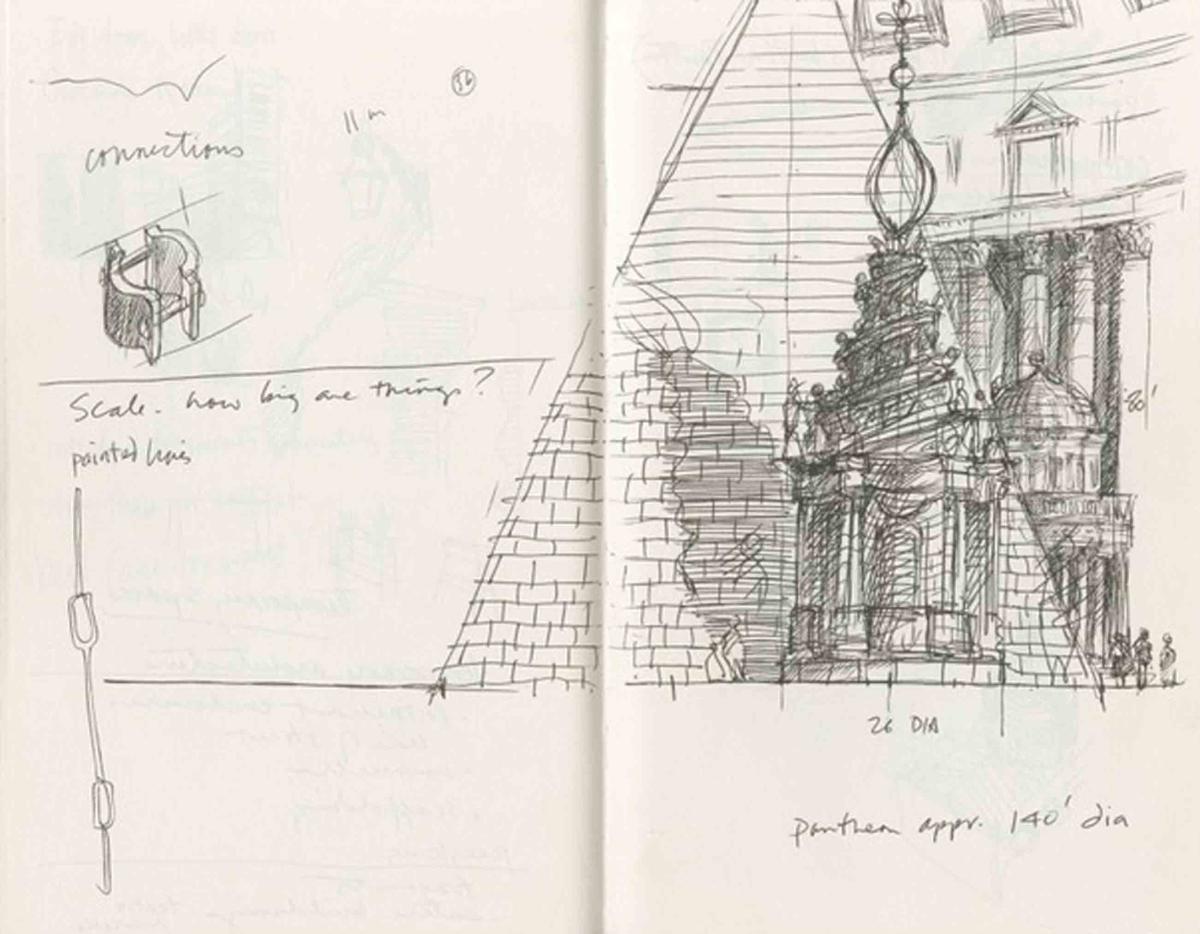 56
11 m
connections
Scale. how big are things?
painted lines
80'
26 DIA
pantheon appr. 140' dia